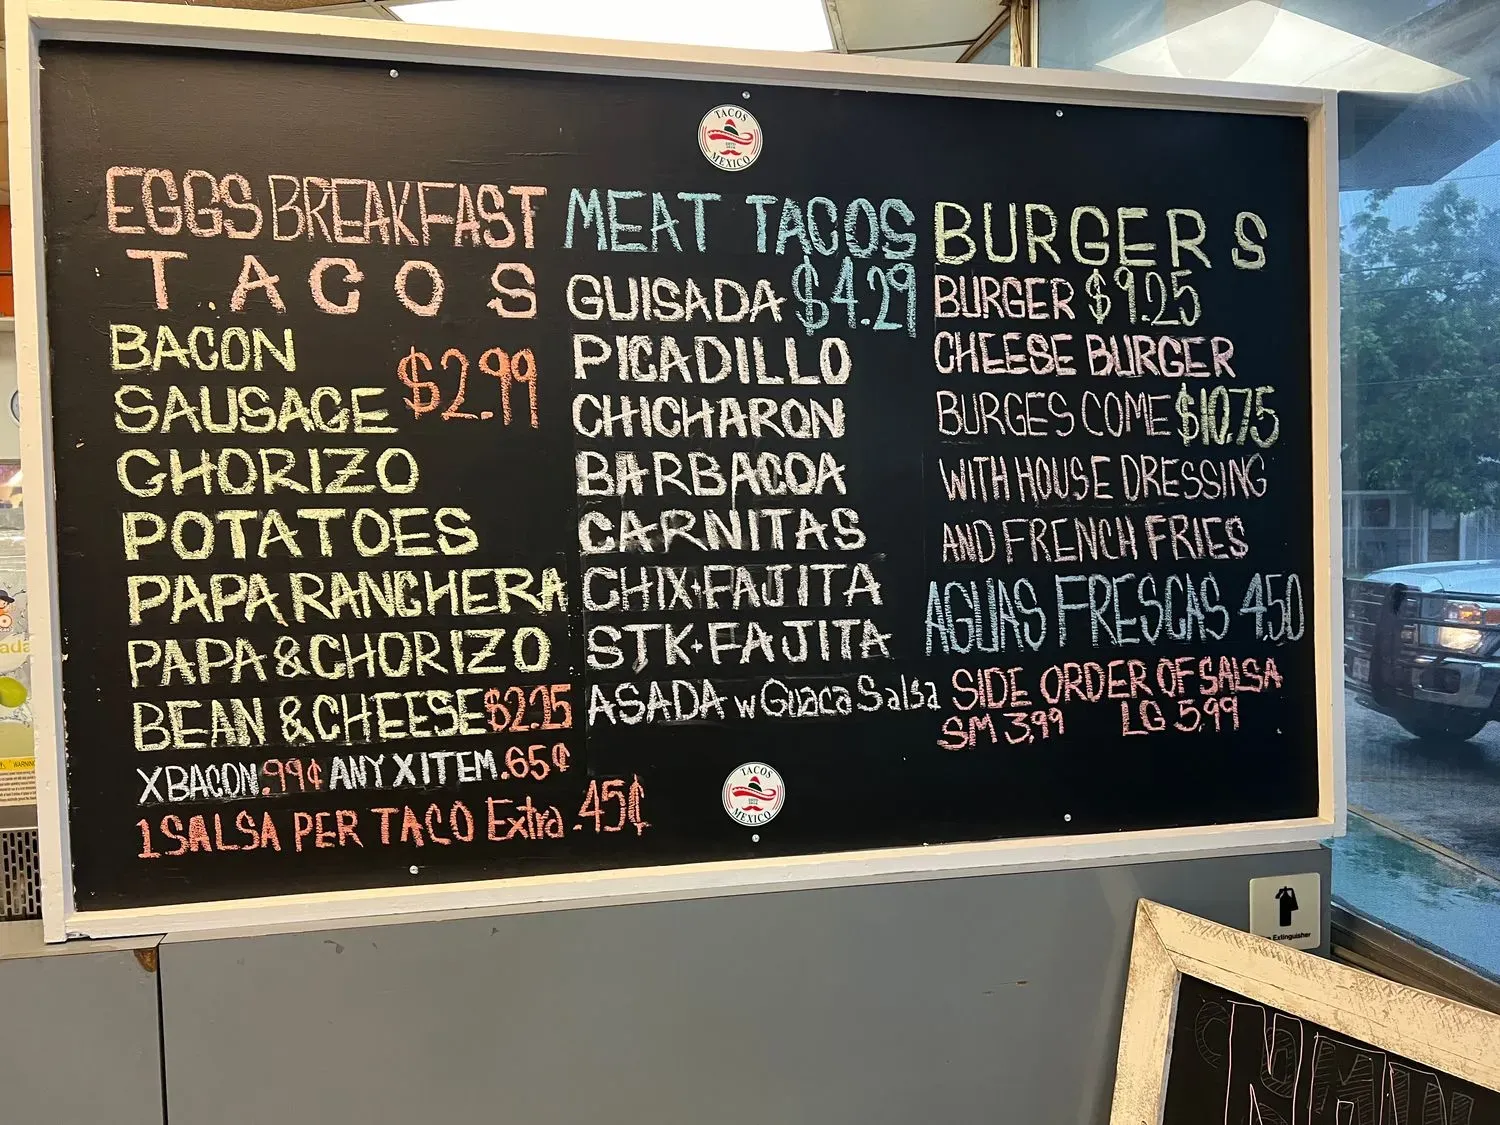 TACOS
MEXICO
EGGS BREAKFAST
T.ACOS
BACON
SAUSAGE $2.99
CHORIZO
POTATOES
PAPA RANCHERA
PAPA & CHORIZO
BEAN & CHEESE $2.25
X BACON .99¢ ANY X ITEM .65¢
1 SALSA PER TACO Extra .45¢
MEAT TACOS
GUISADA $4.29
PICADILLO
CHICHARON
BARBACOA
CARNITAS
CHIX-FAJITA
STK-FAJITA
ASADA w Guaca Salsa
TACOS
MEXICO
BURGERS
BURGER $9.25
CHEESE BURGER
BURGES COME $10.75
WITH HOUSE DRESSING
AND FRENCH FRIES
AGUAS FRESCAS 4.50
SIDE ORDER OF SALSA
SM 3.99 LG 5.99
Extinguisher
WARNING